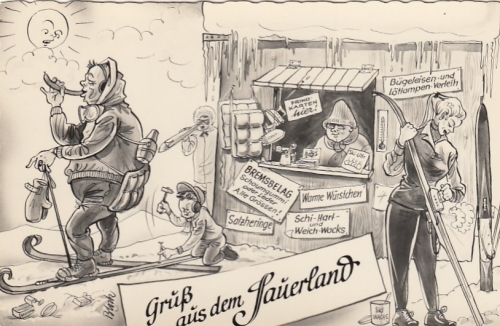 Bügeleisen-und
Lötlampen-Verleih
PRIMA
KARTEN
hier.
BREMSBELAG
Schaumgummi
oder Leder
Alle Grössen!
Warme Würstchen
Salzheringe
Schi-Hart-
und
Weich-Wachs
Gruß
aus dem Sauerland